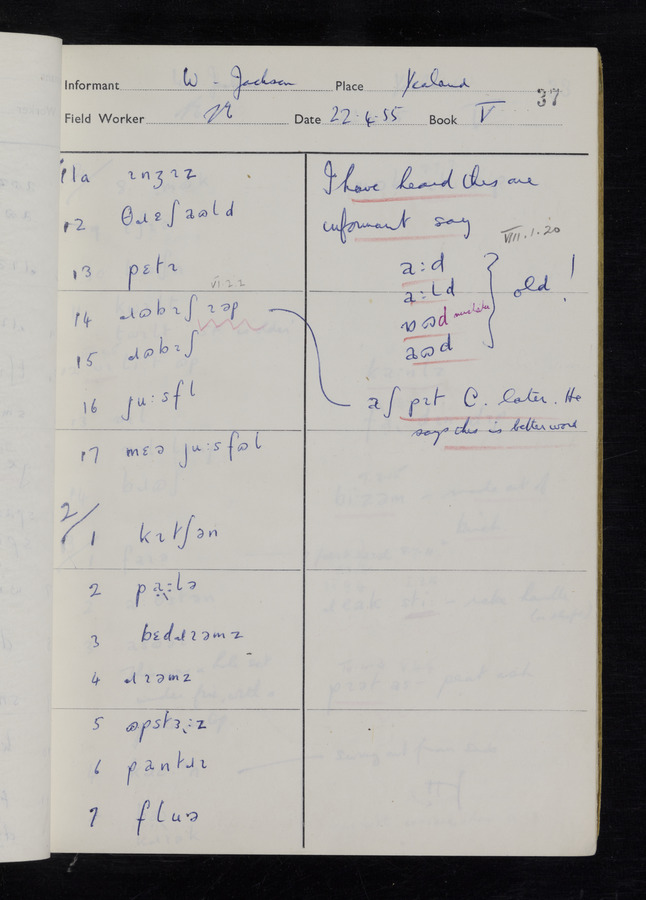 Informant W. Jackson Place Yealand 37
Field Worker Date 22.4.55 Book V
11a ɪnʒɪz
12 θɹɛʃaωld
13 pɛtɪ
VI 2 2
14 ɹωbɪʃ ɪəp
15 ɹωbɪʃ
16 ju:sfl
17 mɛə ju:sfωl
2/
1 kɪtʃən
2 pa:lə
3 bɛdɹɪəmz
4 ɹɪəmz
5 ωpstɜ:z
6 pantɹɪ
7 flωə
I have heard this one
informant say
VIII.1.20
a:d
a:ld
aωd
old !
aʃ pɪt C. later. He
says this is better word